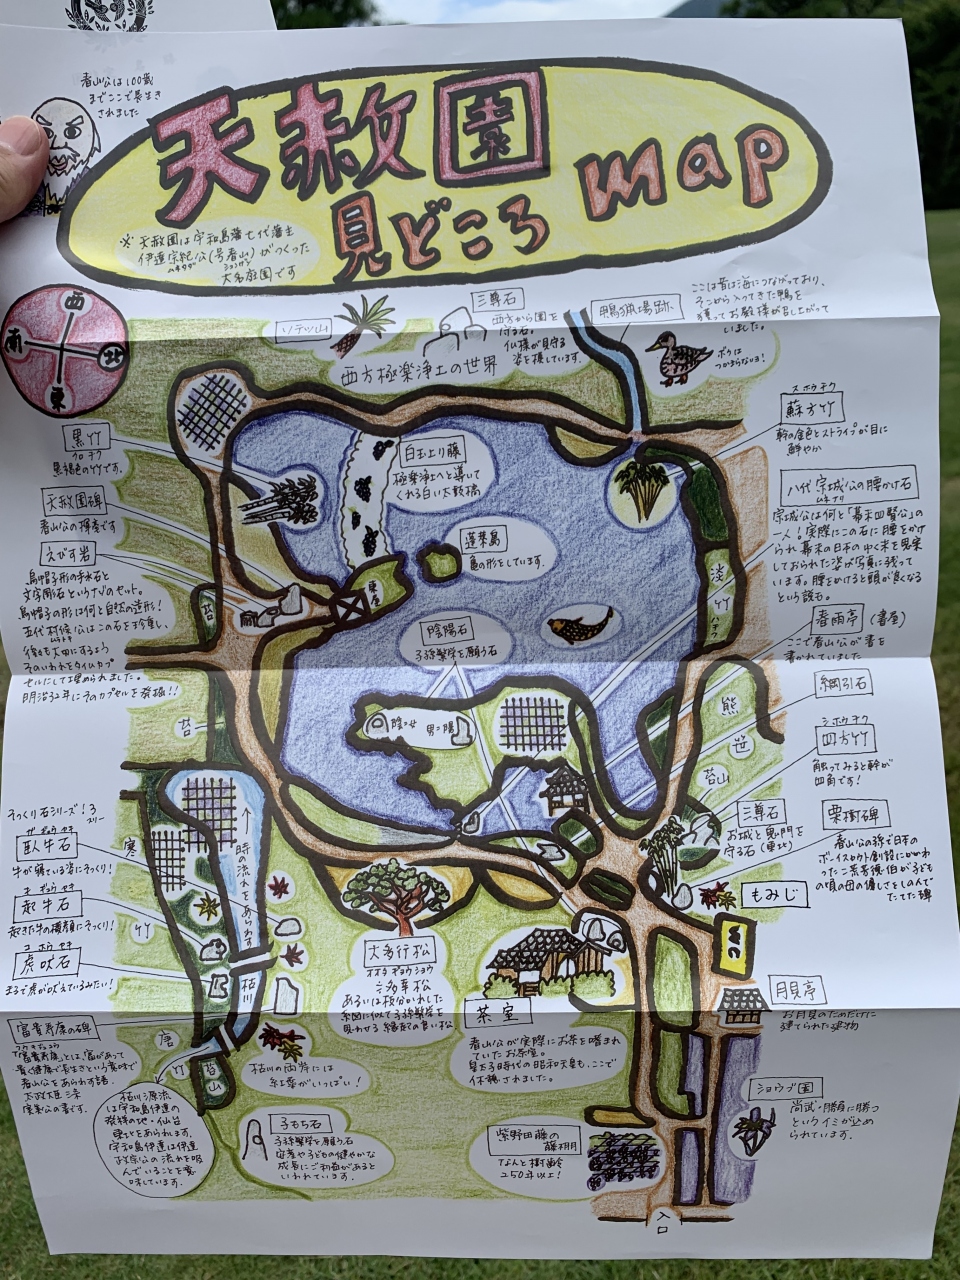 春山公は100歳
までここで長生き
されました
天赦園
見どころ map
※天赦園は宇和島藩七代藩主
伊達宗紀公(号春山)がつくった
ムネタダ
大名庭園です
西
南
北
東
ソテツ山
三尊石
西方から園を
守る石。
仏様が見守る
姿を模しています。
西方極楽浄土の世界
鴨猟場跡
ここは昔は海につながっており、
そこから入ってきた鴨を
獲ってお殿様が召し上がって
いました。
ボクは
つかまらないヨ!
黒竹
クロチク
黒褐色の竹です。
天赦園碑
えびす岩
烏帽子形の手水石と
烏帽子の形は何と自然の造形!
五代村候公はこの石を珍重し、
明治32年にそのカプセルを発掘!!
白玉上り藤
極楽浄土へと導いて
くれる白い太鼓橋
蓬莱島
亀の形をしています。
東屋
陰陽石
子孫繁栄を願う石
陰=女
男=陽
スホウチク
蘇方竹
幹の金色とストライプが目に
鮮やか
八代宗城公の腰かけ石
ムネナリ
宗城公は何と「幕末四賢公」の
一人!実際にこの石に腰をかけ
られ幕末の日本の中く末を見実
ておられた姿が写真に残って
います。腰をかけると頭が良くなる
という説も。
淡
竹
ハチク
春雨亭
(書屋)
ここで春山公が書を
書かれていました
綱引石
シホウチク
四方竹
触ってみると幹が
四角です!
熊
笹
苔山
三尊石
お城と鬼門を
守る石(東北)
栗樹碑
春山公の孫で日本の
ボーイスカウト創設にかかわ
った二荒芳徳伯が子ども
の頃の母の優しさをしのんで
たてた碑
もみじ
WC
苔
苔
そっくり石シリーズ!3
スリー
ガギュウセキ
臥牛石
牛が寝ている姿にそっくり!
キギュウセキ
起牛石
起きた牛の横顔にそっくり!
コホウセキ
虎吠石
まるで虎が吠えているみたい!
寒
竹
時の流れをあらわす
枯川
富貴寿康の碑
「富貴寿康」とは、富があって
貴く健康で長生きという意味で
春山公をあらわす語。
太政大臣三条
実美公の書です。
唐
竹
苔山
枯川源流
は宇和島伊達の
発祥の地・仙台
東北をあらわします。
宇和島伊達は伊達
政宗公の流れを汲
んでいることを意
味しています。
枯川の両岸には
紅葉がいっぱい!
子もち石
子孫繁栄を願う石
安産や子どもの健やかな
成長にご利益があると
いわれています。
大多行松
オオタギョウショウ
=多幸松
あるいは枝分かれした
系図に似て子孫繁栄を
思わせる縁起の良い松
茶室
春山公が実際にお茶を嗜まれ
ていたお茶室。
皇太子時代の昭和天皇も、ここで
休憩されました。
紫野田藤の
藤棚
なんと樹齢
250年以上!
月見亭
お月見のためだけに
建てられた建物
ショウブ園
尚武・勝負に勝つ
というイミが込め
られています。
入口